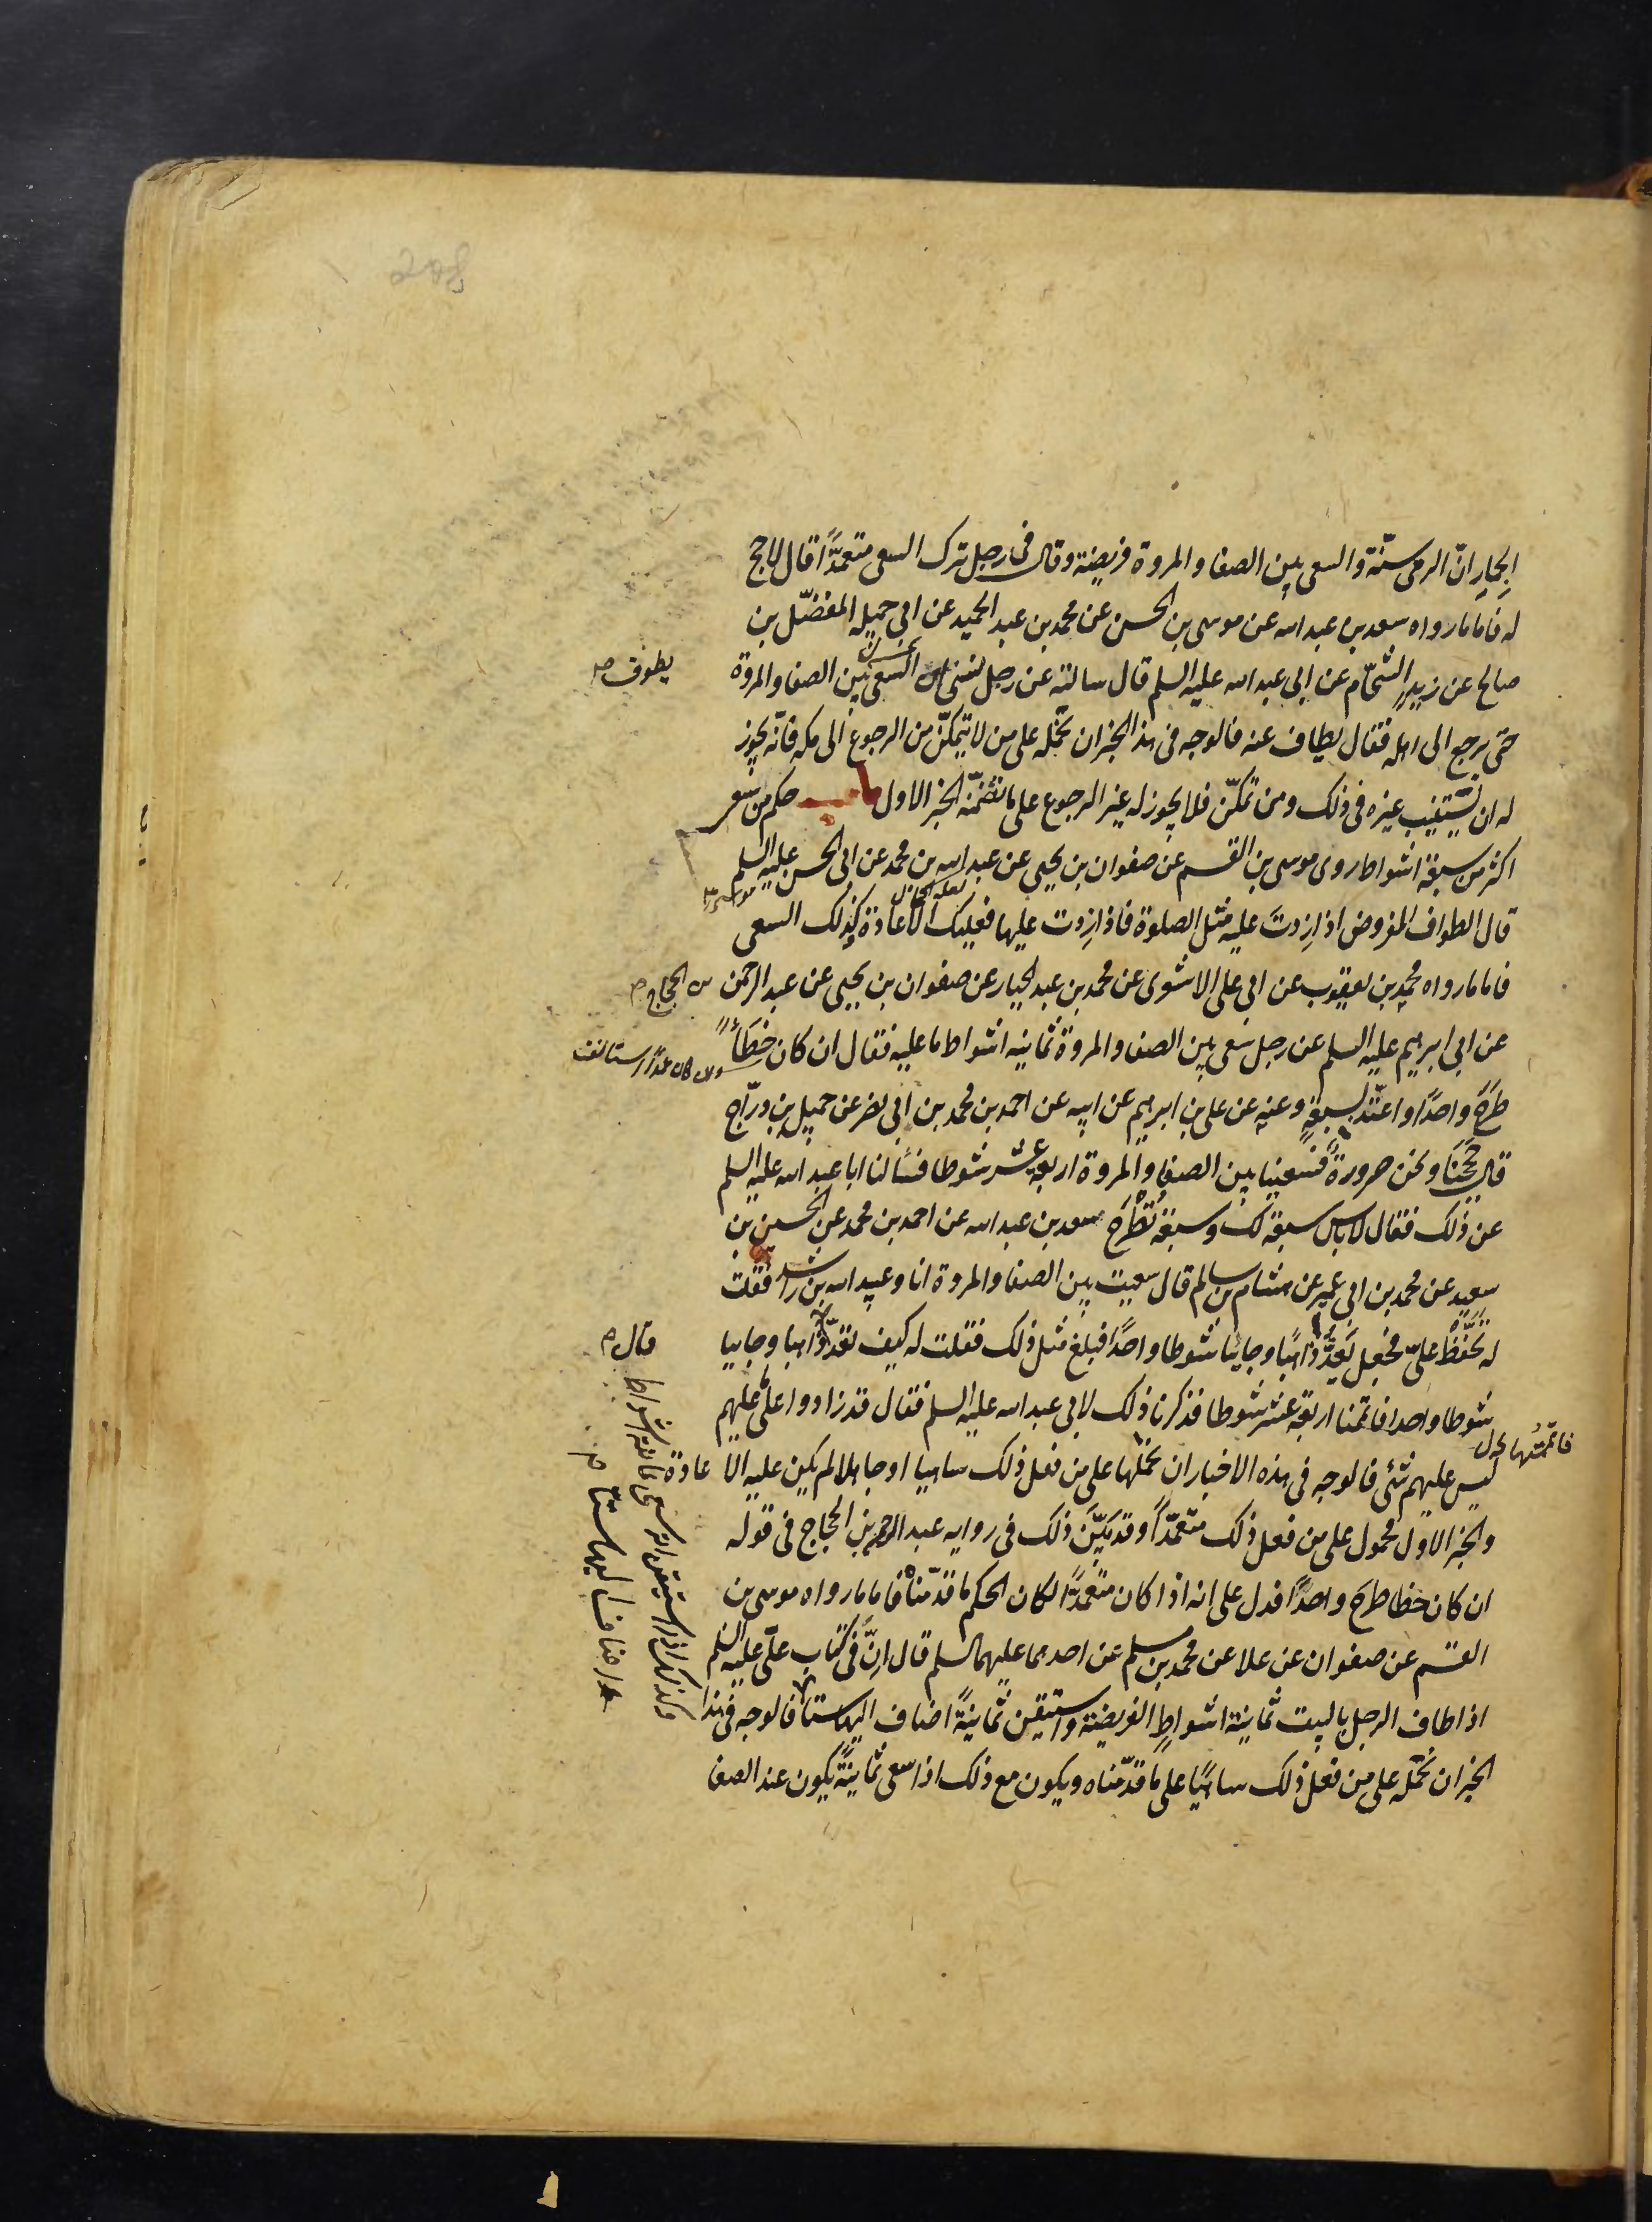 الجِمارِ انّ الرمى سنّة والسعى بين الصفا والمروة فريضة وقال فى رجل ترك السعى متعمّدًا قال لا حج
له فاما ما رواه سعد بن عبد الله عن موسى بن الحسن عن محمد بن عبد الحميد عن ابى جميله المفضّل بن
صالح عن زيدٍ الشحّام عن ابى عبد الله عليه السلم قال سالته عن رجل نسى ان السعى بين الصفا والمروة
يطوف
حتى يرجع الى اهله فقال يطاف عنه فالوجه فى هذا الخبر ان نحمله على من لا يتمكّن من الرجوع الى مكه فانّه يجوز
له ان يستنيب غيره فى ذلك ومن تمكّن فلا يجوز له غير الرجوع على ما تضمّنه الخبر الاول باب حكم من سعى
اكثر من سبعة اشواط روى موسى بن القسم عن صفوان بن يحيى عن عبد الله بن محمد عن ابى الحسن عليه السلم
قال الطواف المفروض اذا زدتَ عليه مثل الصلوة فاذا زدت عليها فعليك الاعادة وكذلك السعى
فاما ما رواه محمد بن يعقوب عن ابى على الاشعرى عن محمد بن عبد الجبار عن صفوان بن يحيى عن عبد الرحمن
بن الحجاج
عن ابى ابرهيم عليه السلم عن رجل سعى بين الصفا والمروة ثمانيه اشواط ما عليه فقال ان كان خطأً
طرحَ واحدًا واعتّد بسبعةٍ وعنه عن على بن ابرهيم عن ابيه عن احمد بن محمد بن ابى نصر عن جميل بن درّاج
قال حججنَا ونحن صرورةً فسعينا بين الصفا والمروة اربعة عشر شوطا فسئالنا ابا عبد الله عليه السلم
عن ذلك فقال لا باس سبعة لك وسبعة تُطْرَح سعد بن عبد الله عن احمد بن محمد عن الحسين بن
سعيد عن محمد بن ابى عمير عن هشام بن سالم قال سعيت بين الصفا والمروة انا وعبيد الله بن راشد فقلت
له تحفّظْ علىّ فجعل يَعدّ ذاهبًا وجايئا شوطا واحدًا فبلغ مثل ذلك فقلت له كيف تعدّ ذاهبا وجاييا
قال
شوطا واحدا فاتممنا اربعة عشر شوطا فذكرنا ذلك لابى عبد الله عليه السلم فقال قد زادوا على ما عليهم
فاتممتُها
ليس عليهم شئى فالوجه فى هذه الاخبار ان نحملها على من فعل ذلك ساهيا او جاهلا لم يكن عليه الاعادة
والخبر الاول محمول على من فعل ذلك متعمّدًا وقد بَيّنَ ذلك فى روايه عبد الرحمن بن الحجاج فى قوله
ان كان خطا طرحَ واحدًا فدل على انه اذا كان متعمّدًا لكان الحكم ما قدّمناه فاما ما رواه موسى بن
القسم عن صفوان عن علا عن محمد بن مسلم عن احدهما عليهما السلم قال انّ فى كتاب علىّ عليه السلم
اذا طاف الرجل بالبيت ثمانية اشواطٍ الفريضة واستيقن ثمانيةً اضاف اليها ستا فالوجه فى هذا
وكذلك اذا استيقن انه سعى ثمانية اشواط
اضاف اليها ستّا
الخبر ان نحمله على من فعل ذلك ساهيًا على ما قدّمناه ويكون مع ذلك اذا سعى ثمانيةً يكون عند الصفا